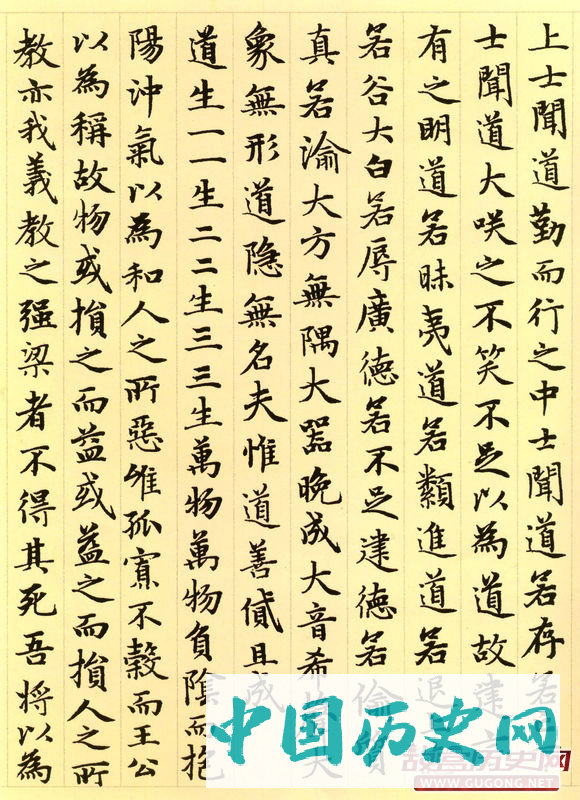 上士聞道勤而行之中士聞道若存若
士聞道大咲之不笑不足以為道故建
有之明道若昧夷道若纇進道若退
若谷大白若辱廣德若不足建德若偷
真若渝大方無隅大器晚成大音希大
象無形道隐無名夫惟道善貸且成
道生一一生二二生三三生萬物萬物負陰而抱
陽沖氣以為和人之所惡唯孤寡不穀而王公
以為稱故物或損之而益或益之而損人之所
教亦我義教之强梁者不得其死吾將以為
中国历史网
WWW.GUGONG.NET